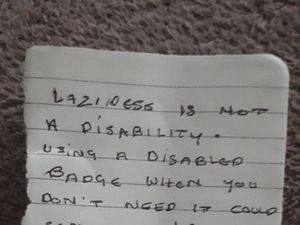 LAZINESS IS NOT
A DISABILITY.
USING A DISABLED
BADGE WHEN YOU
DON'T NEED IT COULD